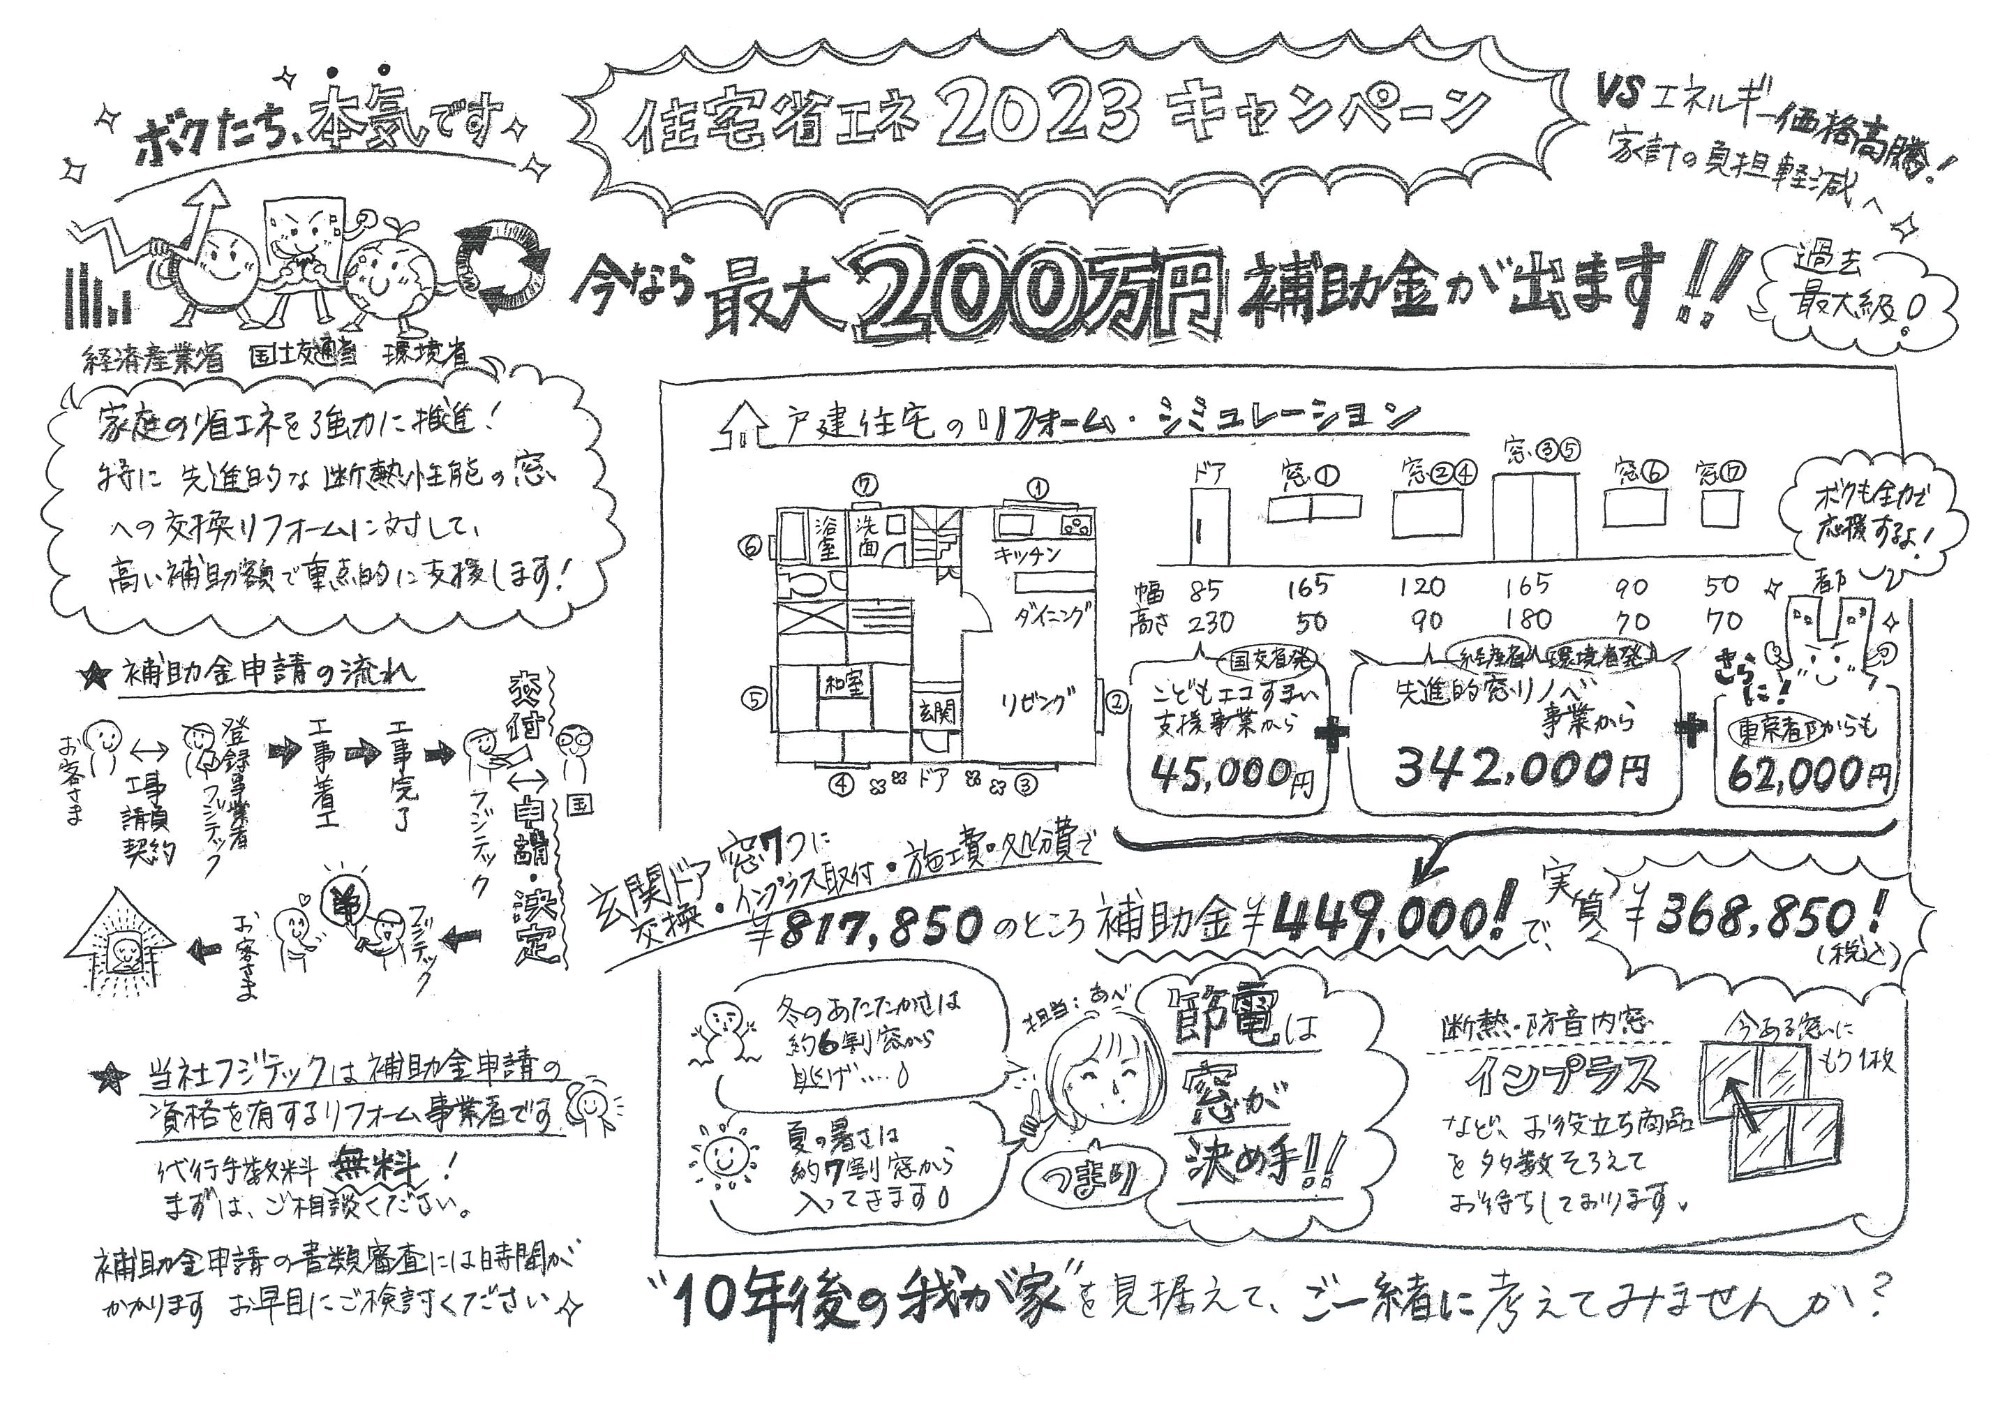 ボクたち、本気です
住宅省エネ2023キャンペーン
VSエネルギー価格高騰!
家計の負担軽減へ
今なら最大200万円補助金が出ます!!
過去
最大級!
経済産業省 国土交通省 環境省
家庭の省エネを強力に推進!
特に先進的な断熱性能の窓
への交換リフォームに対して、
高い補助額で重点的に支援します!
★補助金申請の流れ
お客さま
工事請負契約
登録事業者
フジテック
工事着工
工事完了
フジテック
交付
申請・決定
国
フジテック
¥
お客さま
★当社フジテックは補助金申請の
資格を有するリフォーム事業者です
代行手数料 無料!
まずは、ご相談ください。
補助金申請の書類審査には時間が
かかります お早目にご検討ください
戸建住宅のリフォーム・シミュレーション
⑦ ①
浴室 洗面
キッチン
⑥
ダイニング
和室
⑤
玄関
リビング
②
④ ドア ③
ドア 窓① 窓②④ 窓③⑤ 窓⑥ 窓⑦
幅 85 165 120 165 90 50
高さ 230 50 90 180 70 70
ボクも全力で
応援するよ!
都
さらに!
国交省発
こどもエコすまい
支援事業から
45,000円
+
経産省 環境省発
先進的窓リノベ
事業から
342,000円
+
東京都からも
62,000円
玄関ドア交換・窓7つにインプラス取付・施工費・処分費で
¥817,850のところ 補助金¥449,000!で、実質¥368,850!
(税込)
冬のあたたかさは
約6割窓から
逃げ・・・・!
夏の暑さは
約7割窓から
入ってきます!
担当:あべ
つまり
節電は
窓が
決め手!!
断熱・防音内窓
インプラス
など、お役立ち商品
を多数そろえて
お待ちしております。
今ある窓に
もう1枚
"10年後の我が家"を見据えて、ご一緒に考えてみませんか?